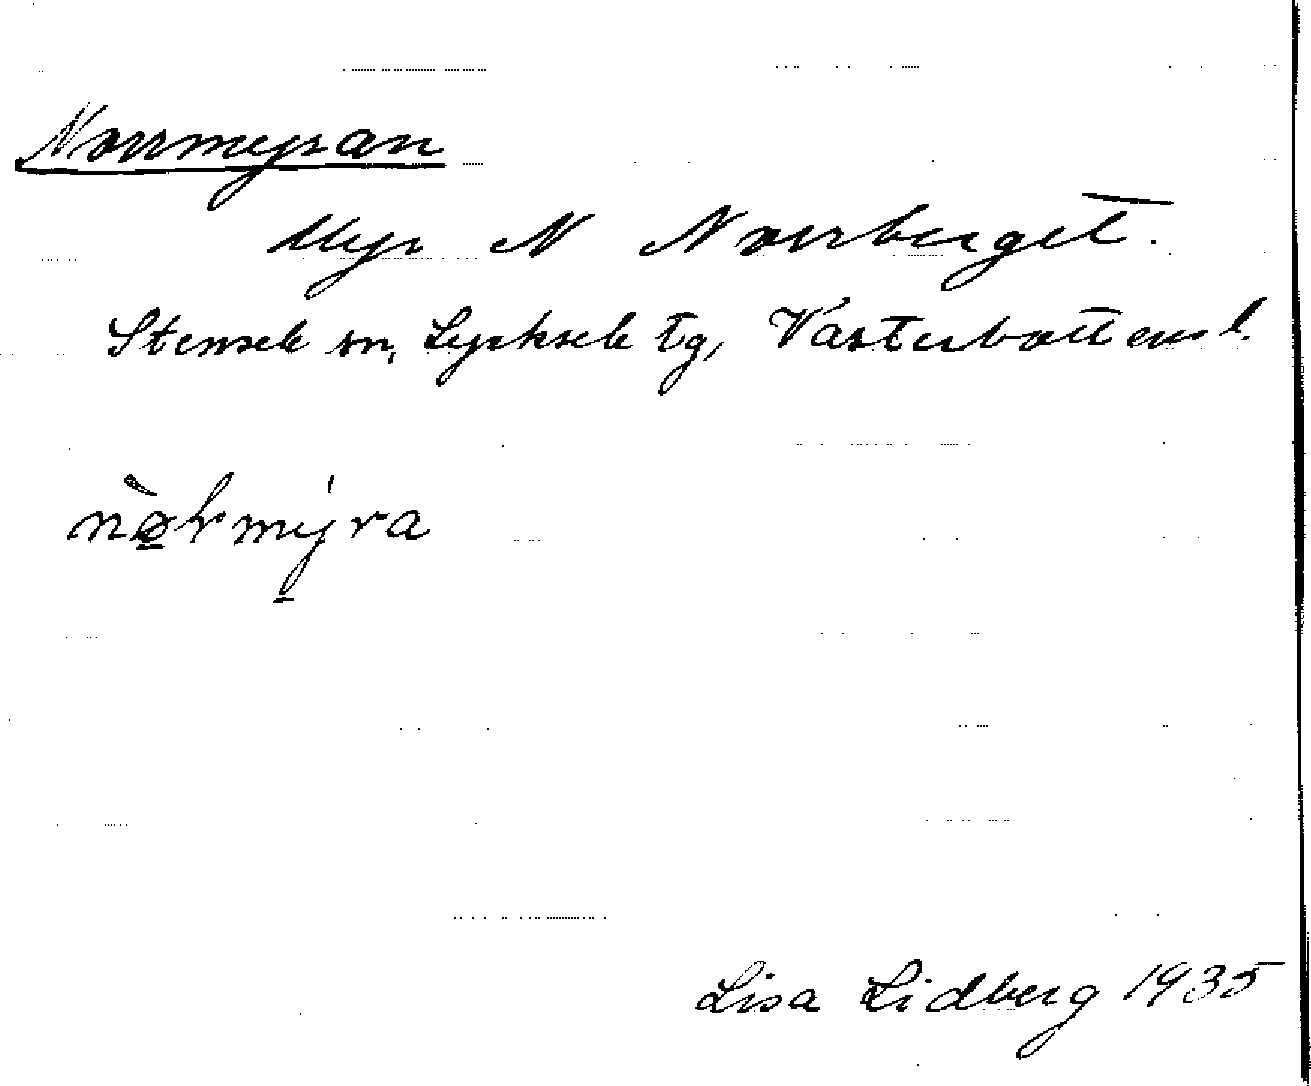 Norrmyran
Myr N Norrberget.
Stensele sn, Lycksele tg, Västerbottens l.
nø̀rmýra
Lisa Lidberg 1935